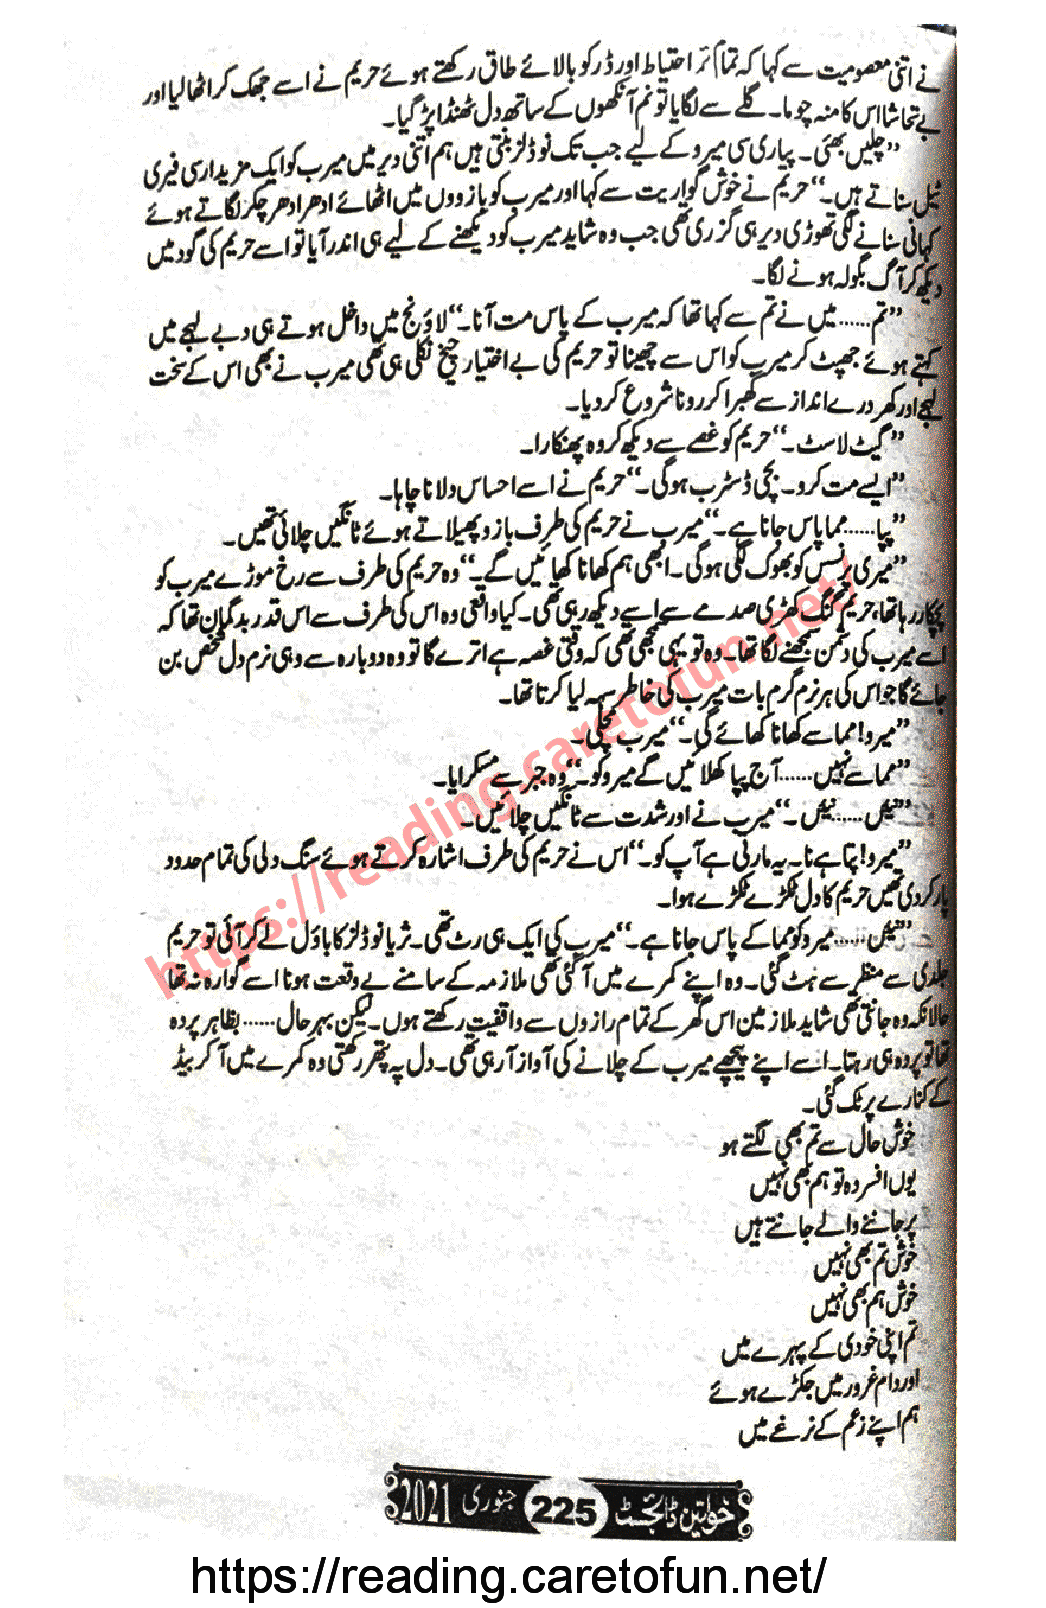 نے اتنی معصومیت سے کہا کہ تمام تر احتیاط اور ڈر کو بالائے طاق رکھتے ہوئے حریم نے اسے جھک کر اٹھا لیا اور
بے تحاشا اس کا منہ چوما۔ گلے سے لگایا تو نم آنکھوں کے ساتھ دل ٹھنڈا پڑ گیا۔
”چلیں بھئی۔ پیاری سی میرو کے لیے جب تک نوڈلز بنتی ہیں ہم اتنی دیر میں میرب کو ایک مزیدار سی فیری
ٹیل سناتے ہیں۔“ حریم نے خوش گواریت سے کہا اور میرب کو بازووں میں اٹھائے ادھر ادھر چکر لگاتے ہوئے
کہانی سنانے لگی تھوڑی دیر ہی گزری تھی جب وہ شاید میرب کو دیکھنے کے لیے ہی اندر آیا تو اسے حریم کی گود میں
دیکھ کر آگ بگولہ ہونے لگا۔
”تم...... میں نے تم سے کہا تھا کہ میرب کے پاس مت آنا۔“ لاؤنج میں داخل ہوتے ہی دبے لہجے میں
کہتے ہوئے جھپٹ کر میرب کو اس سے چھینا تو حریم کی بے اختیار چیخ نکلی ہی تھی میرب نے بھی اس کے سخت
لہجے اور کھردرے انداز سے گھبرا کر رونا شروع کر دیا۔
”گیٹ لاسٹ۔“ حریم کو غصے سے دیکھ کر وہ پھنکارا۔
”ایسے مت کرو۔ بچی ڈسٹرب ہوگی۔“ حریم نے اسے احساس دلانا چاہا۔
”پپا...... مما پاس جانا ہے۔“ میرب نے حریم کی طرف بازو پھیلاتے ہوئے ٹانگیں چلائی تھیں۔
”میری پرنسس کو بھوک لگی ہوگی۔ ابھی ہم کھانا کھائیں گے۔“ وہ حریم کی طرف سے رخ موڑے میرب کو
پچکار رہا تھا، حریم گنگ کھڑی صدمے سے اسے دیکھ رہی تھی۔ کیا واقعی وہ اس کی طرف سے اس قدر بدگمان تھا کہ
اسے میرب کی دشمن سمجھنے لگا تھا۔ وہ تو یہی سمجھی تھی کہ وقتی غصہ ہے اترے گا تو وہ دوبارہ سے وہی نرم دل شخص بن
جائے گا جو اس کی ہر نرم گرم بات میرب کی خاطر سہہ لیا کرتا تھا۔
”میرو! مما سے کھانا کھائے گی۔“ میرب مچلی۔
”مما سے نہیں...... آج پپا کھلائیں گے میرو کو۔“ وہ جبر سے مسکرایا۔
”نئیں...... نئیں۔“ میرب نے اور شدت سے ٹانگیں چلائیں۔
”میرو! پتا ہے نا۔ یہ مارتی ہے آپ کو۔“ اس نے حریم کی طرف اشارہ کرتے ہوئے سنگ دلی کی تمام حدود
پار کر دی تھیں حریم کا دل ٹکڑے ٹکڑے ہوا۔
”نئیں...... میرو کو مما کے پاس جانا ہے۔“ میرب کی ایک ہی رٹ تھی۔ ثریا نوڈلز کا باؤل لے کر آئی تو حریم
جلدی سے منظر سے ہٹ گئی۔ وہ اپنے کمرے میں آ گئی تھی ملازمہ کے سامنے بے وقعت ہونا اسے گوارہ نہ تھا
حالانکہ وہ جانتی تھی شاید ملازمین اس گھر کے تمام رازوں سے واقفیت رکھتے ہوں۔ لیکن بہر حال...... بظاہر پردہ
تھا تو پردہ ہی رہتا۔ اسے اپنے پیچھے میرب کے چلانے کی آواز آ رہی تھی۔ دل پہ پتھر رکھتی وہ کمرے میں آ کر بیڈ
کے کنارے پر ٹک گئی۔
خوش حال سے تم بھی لگتے ہو
یوں افسردہ تو ہم بھی نہیں
پر جاننے والے جانتے ہیں
خوش تم بھی نہیں
خوش ہم بھی نہیں
تم اپنی خودی کے پہرے میں
اور دام غرور میں جکڑے ہوئے
ہم اپنے زعم کے نرغے میں
خواتین ڈائجسٹ 225 جنوری 2021
https://reading.caretofun.net/
https://reading.caretofun.net/